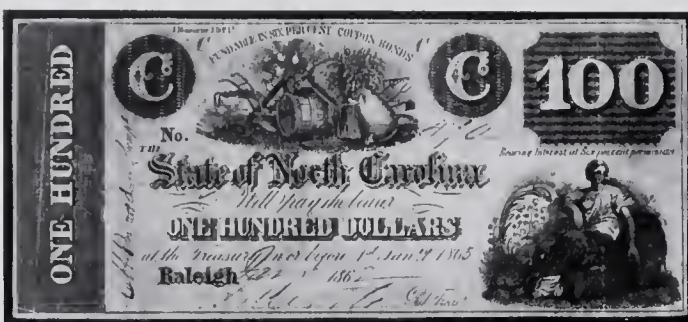 ONE HUNDRED
FUNDABLE IN SIX PER CENT COUPON BONDS
C C
C C 100
No.
Bearing Interest at Six per cent per annum
THE
State of North Carolina
Will pay the bearer
ONE HUNDRED DOLLARS
at the Treasury on or before 1st Jan'y 1865
Raleigh 186